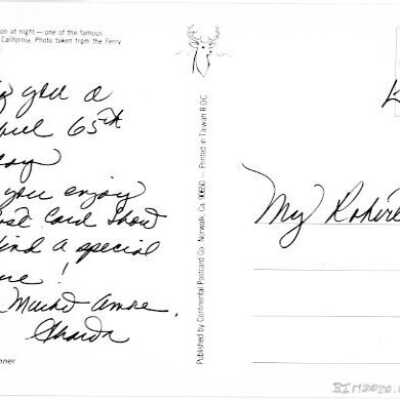 on at night — one of the famous
California. Photo taken from the Ferry
you a
65th
you enjoy
Card Show
find a special
!
Mucho Amore,
Sharon
nner
Published by Continental Postcard Co · Norwalk, Ca. 90650 — Printed in Taiwan R.O.C.
My
BIM2020.